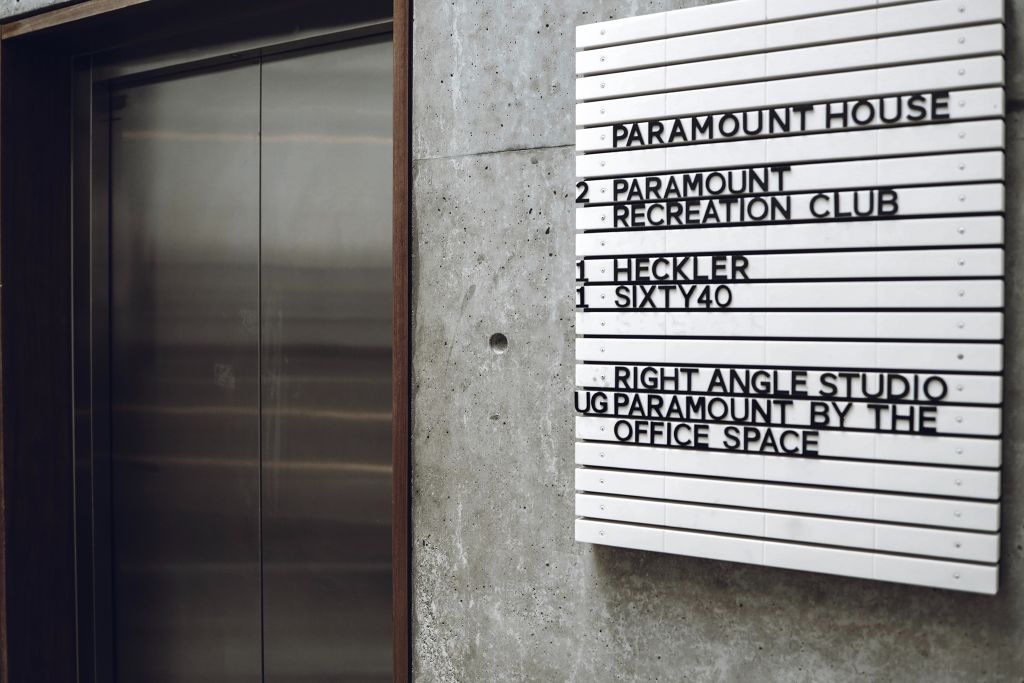 PARAMOUNT HOUSE
2 PARAMOUNT
RECREATION CLUB
1 HECKLER
1 SIXTY40
RIGHT ANGLE STUDIO
UG PARAMOUNT BY THE
OFFICE SPACE